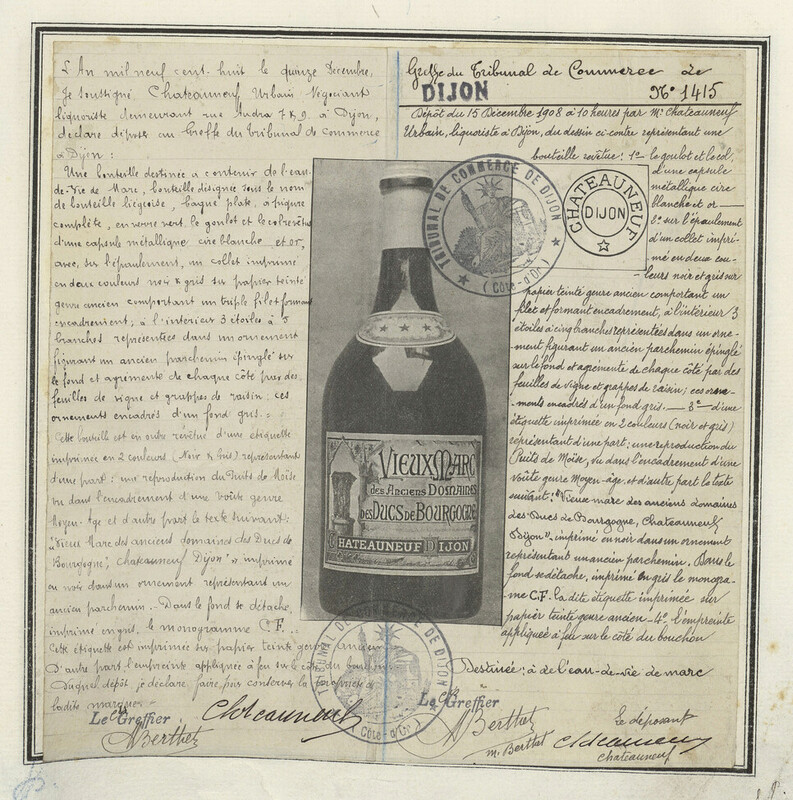 L'An mil neuf cent huit le quinze Décembre,
Je soussigné Chateauneuf Urbain Négociant
liquoriste demeurant rue Audra 7 & 9 à Dijon,
déclare déposer au Greffe du Tribunal de Commerce
à Dijon :
Une bouteille destinée à contenir de l'eau-
de-Vie de Marc, bouteille désignée sous le nom
de bouteille liégeoise, bague plate, à piqure
complète, en verre vert, le goulot et le col revêtus
d'une capsule métallique cire blanche et or,
avec, sur l'épaulement, un collet imprimé
en deux couleurs noir & gris sur papier teinté
genre ancien comportant un triple filet formant
encadrement; à l'intérieur 3 étoiles à 5
branches représentées dans un ornement
figurant un ancien parchemin épinglé sur
le fond et agrémenté de chaque côté par des
feuilles de vigne et grappes de raisin; ces
ornements encadrés d'un fond gris. -
Cette bouteille est en outre revêtue d'une étiquette
imprimée en 2 couleurs (Noir & Gris) représentant
d'une part : une reproduction du Puits de Moïse
vu dans l'encadrement d'une voûte genre
Moyen-Age et d'autre part le texte suivant :
"Vieux Marc des anciens domaines des Ducs de
Bourgogne, Chateauneuf Dijon", imprimé
en noir dans un ornement représentant un
ancien parchemin. - Dans le fond se détache,
imprimé en gris, le monogramme C.F. -
Cette étiquette est imprimée sur papier teinté genre ancien
D'autre part, l'empreinte appliquée à feu sur le côté du bouchon
Duquel dépôt je déclare faire, pour conserver la propriété de
ladite marque.
Le Greffier
Chateauneuf
Berthet
Greffe du Tribunal de Commerce de
DIJON
N° 1415
Dépôt du 15 Décembre 1908 à 10 heures par Mr Chateauneuf
Urbain, liquoriste à Dijon, du dessin ci-contre représentant une
bouteille revêtue : 1° le goulot et le col,
d'une capsule
métallique cire
blanche et or -
2° sur l'épaulement
d'un collet impri-
mé en deux cou-
leurs noir et gris sur
papier teinté genre ancien comportant un
filet et formant encadrement, à l'intérieur 3
étoiles à cinq branches représentées dans un orne-
ment figurant un ancien parchemin épinglé
sur le fond et agrémenté de chaque côté par des
feuilles de vigne et grappes de raisin; ces orne-
-ments encadrés d'un fond gris. — 3° d'une
étiquette imprimée en 2 couleurs (noir et gris)
représentant d'une part; une reproduction du
Puits de Moïse, vu dans l'encadrement d'une
voûte genre Moyen-âge, et d'autre part le texte
suivant: "Vieux marc des anciens domaines
des Ducs de Bourgogne, Chateauneuf
Dijon", imprimé en noir dans un ornement
représentant un ancien parchemin. Dans le
fond se détache, imprimé en gris le monogra-
-me C.F. la dite étiquette imprimée sur
papier teinté genre ancien - 4° l'empreinte
appliquée à feu sur le côté du bouchon
Destinée; à de l'eau-de-vie de marc
Le Greffier
Berthet
m. Berthet
Le déposant
Chateauneuf
Chateauneuf
TRIBUNAL DE COMMERCE DE DIJON
(Côte-d'Or)
CHATEAUNEUF
DIJON
VIEUX MARC
des Anciens Domaines
des Ducs de Bourgogne
CHATEAUNEUF DIJON
TRIBUNAL DE COMMERCE DE DIJON
(Côte-d'Or)